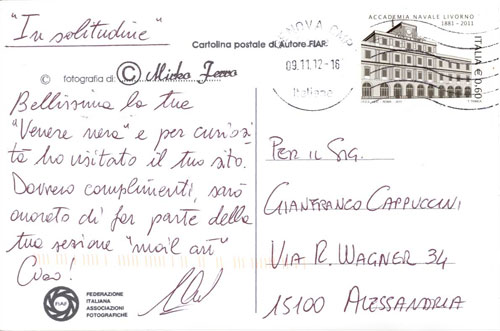 "In solitudine"
Cartolina postale di Autore FIAF.
© fotografia di:
© Mirko
Bellissima la tua
"Venere nera" e per curiosi
tà ho visitato il tuo sito.
Davvero complimenti, sarò
onorato di far parte della
tua sezione "mail art"
Ciao!
FIAF
FEDERAZIONE
ITALIANA
ASSOCIAZIONI
FOTOGRAFICHE
GENOVA CMP
09.11.12-16
Italiane
ACCADEMIA NAVALE LIVORNO
1881-2011
ITALIA €0,60
PER IL SIG.
GIANFRANCO CAPPUCCINI
VIA R. WAGNER 34
15100 ALESSANDRIA